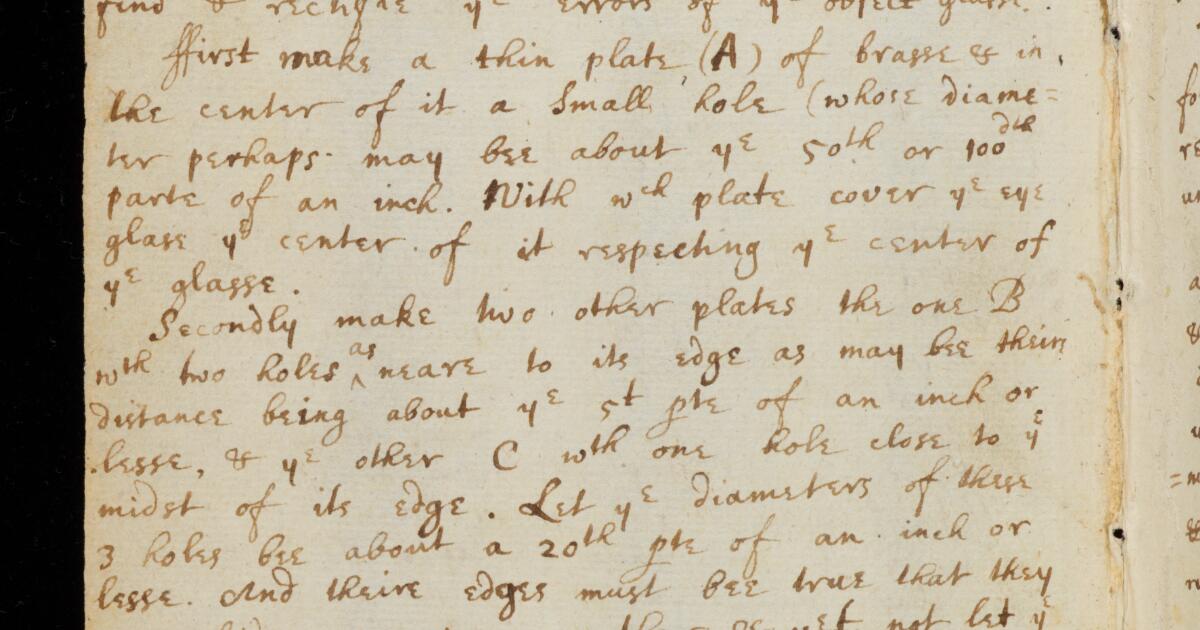 find & rectifie yᵉ errors of yᵉ object glasse.
ffirst make a thin plate (A) of brasse & in
the center of it a small hole (whose diame=
ter perhaps may bee about yᵉ 50th or 100dth
parte of an inch. With wch plate cover yᵉ eye
glase yᵉ center of it respecting yᵉ center of
yᵉ glasse.
Secondly make two other plates the one B
wth two holes as neare to its edge as may bee theire
distance being about yᵉ 5t pte of an inch or
lesse, & yᵉ other C wth one hole close to yᵉ
midst of its edge. Let yᵉ diameters of these
3 holes bee about a 20th pte of an inch or
lesse. And theire edges must bee true that they
not let yᵉ